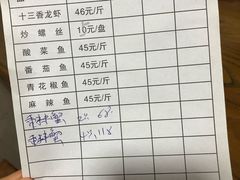 十三香龙虾 46元/斤
炒螺丝 10元/盘
酸菜鱼 45元/斤
番茄鱼 45元/斤
青花椒鱼 45元/斤
麻辣鱼 45元/斤